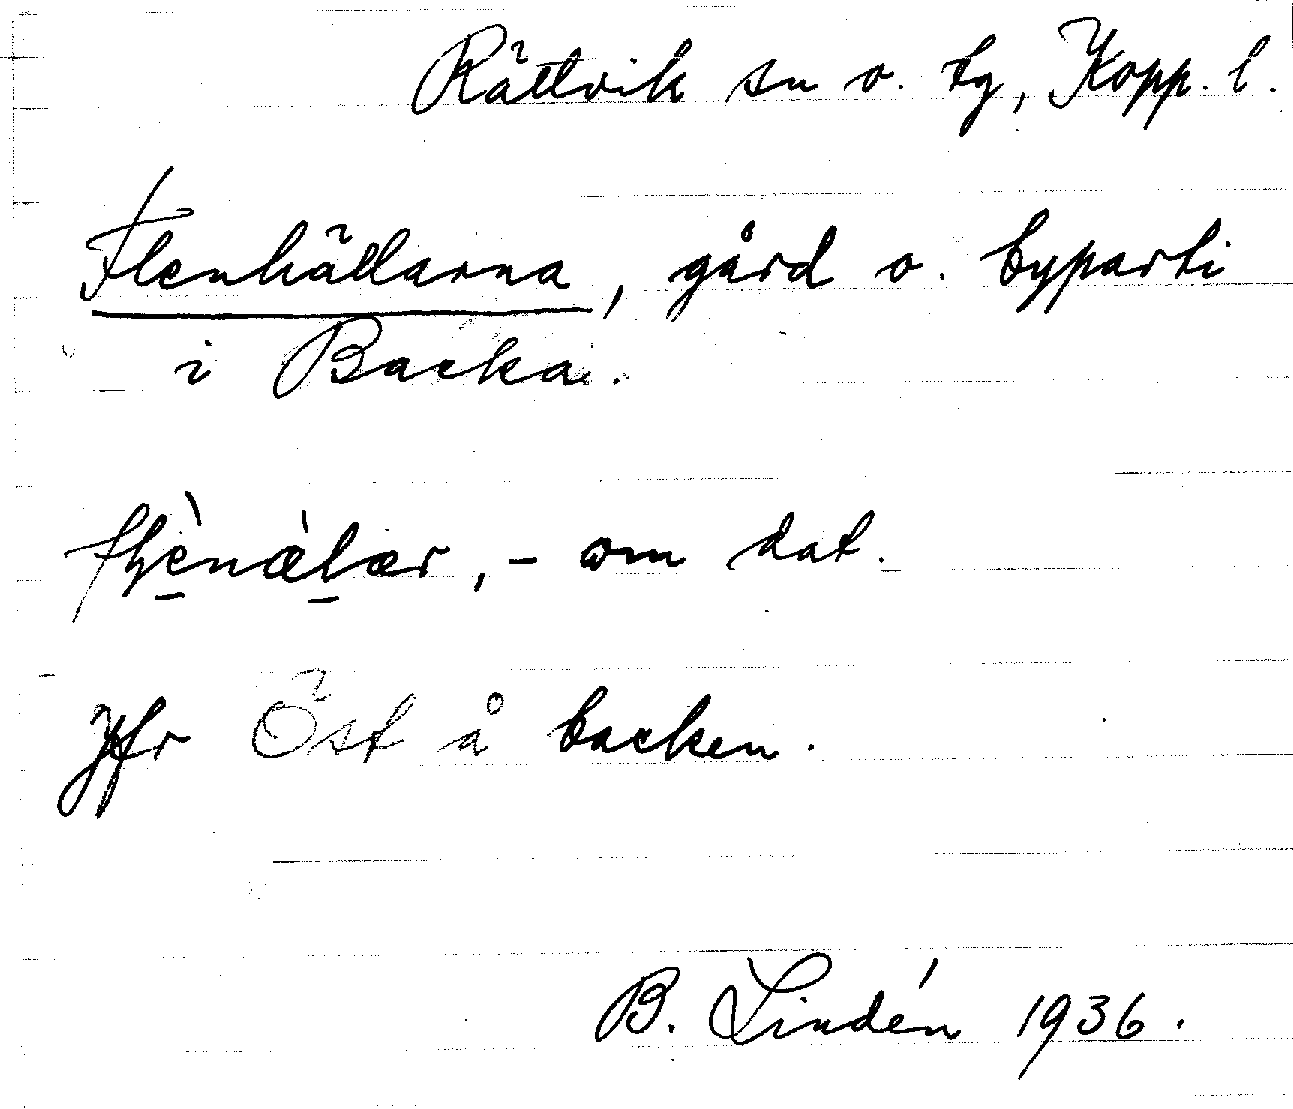 Rättvik sn o. tg, Kopp. l.
Flenhällarna, gård o. byparti
i Backa.
-om dat.
Jfr Öst å backen.
B. Lindén 1936.